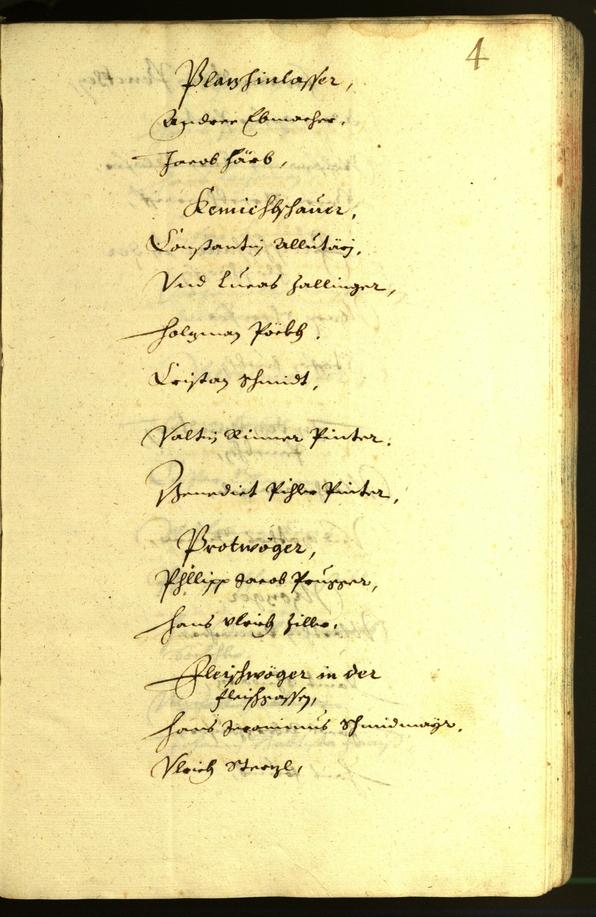 4
Plazhinlasser,
Andree Ebmacher,
Jacob Härb,
Kemichbschauer,
Constantin Allutärj,
Vnd Lucas Zallinger,
Holzman Pöckh,
Cristan Schmidt,
Valtin Rinner Pinter,
Benedict Pihler Pinter,
Protwöger,
Phillipp Jacob Prugger,
Hans Vlrich Ziller,
Fleischwöger in der
fleischgassen,
Hans Jeronimus Schmidmayr,
Vlrich Sterzl,